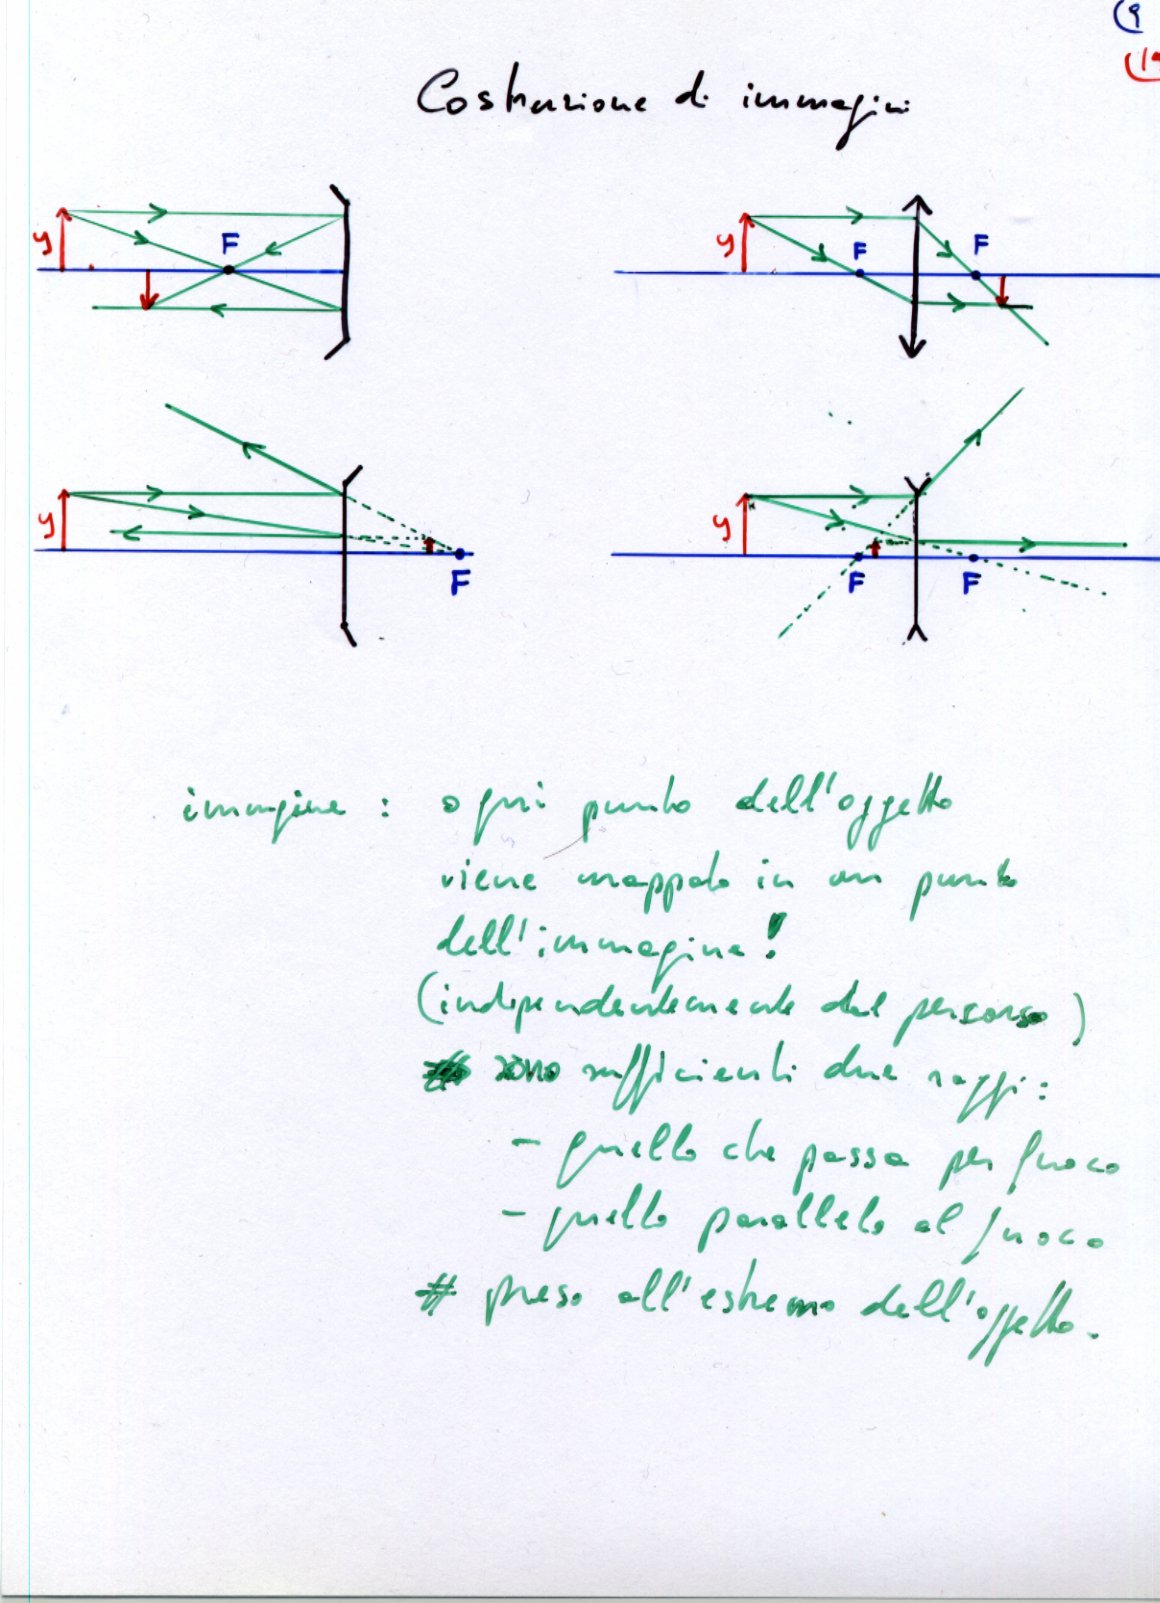 (9
(19
Costruzione di immagini
y F
y F F
y F
y F F
immagine : ogni punto dell'oggetto
viene mappato in un punto
dell'immagine!
(indipendentemente dal percorso)
# sono sufficienti due raggi:
- quello che passa per fuoco
- quello parallelo al fuoco
# preso all'estremo dell'oggetto.